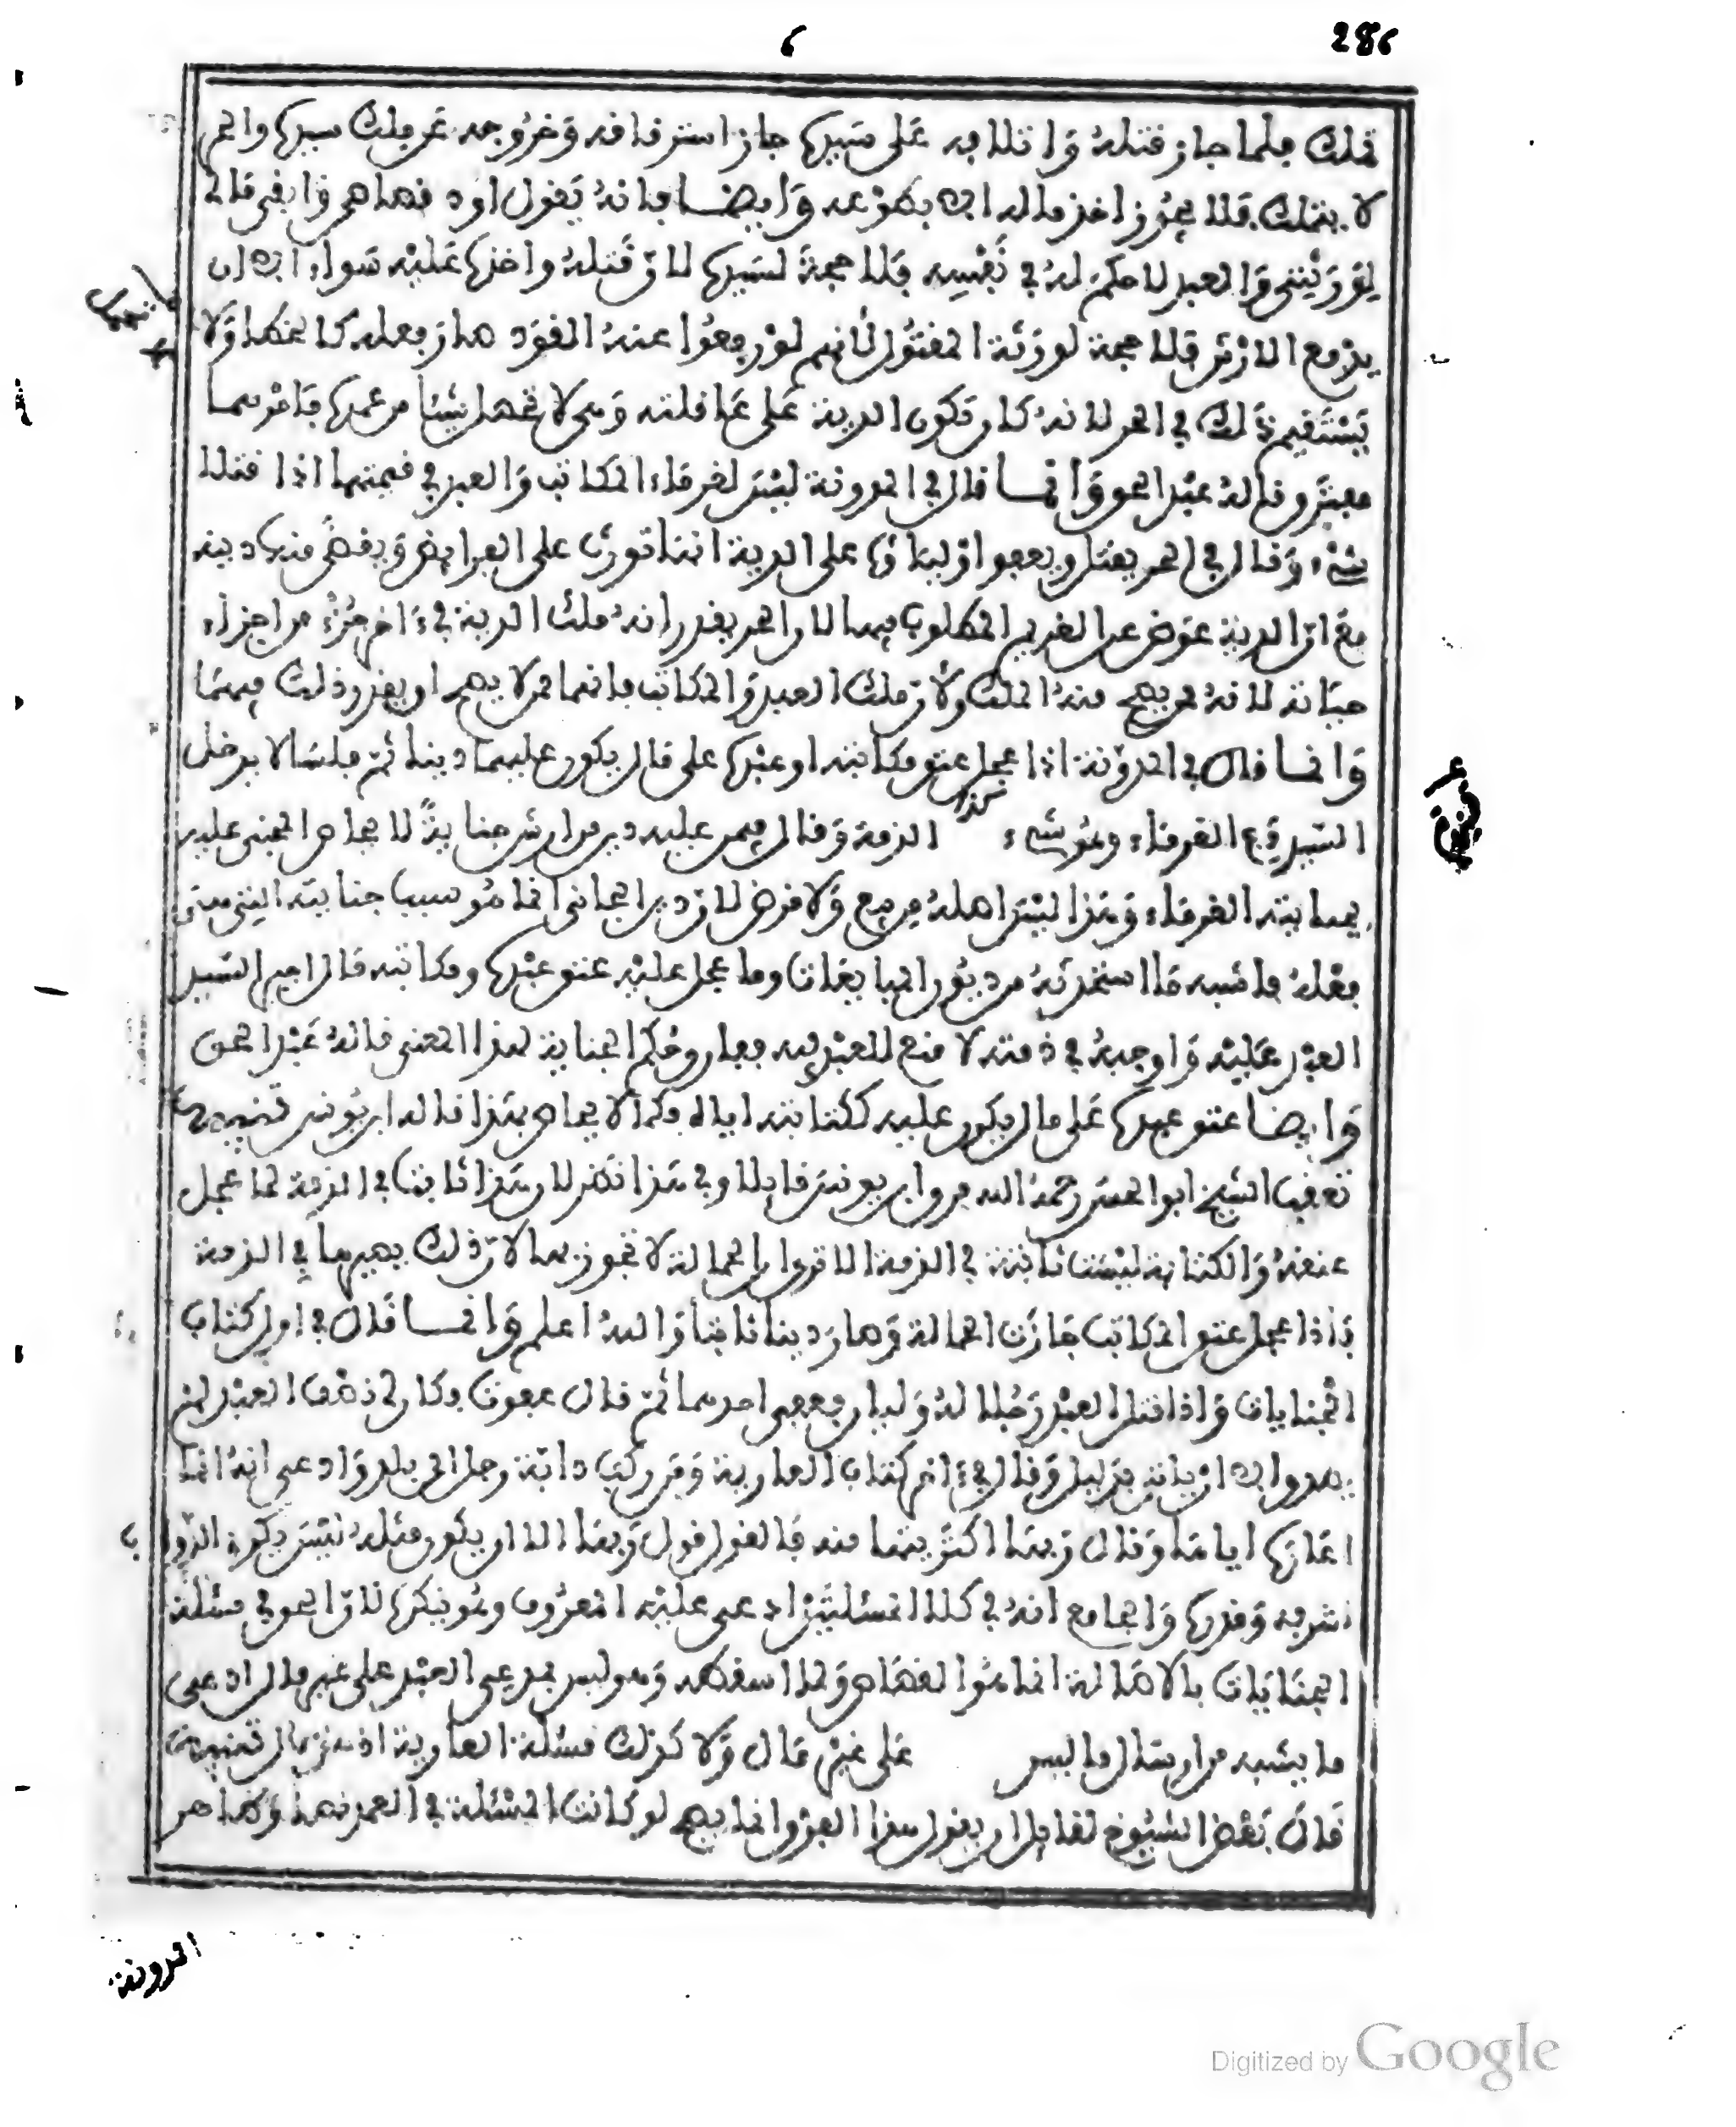 286
تملك فلما جاز قتله واتلافه على سيده جاز استرقاقه وخروجه عن ملك سيده والحر
لا يتملك فلا يجوز اخذ ماله الا بطوعه وايضا فانه يقول اودي قصاصا وابقي مالي
لورثتي والعبد لا حكم له في نفسه فلا حجة لسيده لان قتله واخذه عليه سواء الا ان
يدفع الارش فلا حجة لورثة المقتول لانهم لو رفعوا عنه القود صار فعله كالخطإ ولا
يستقيم ذلك في الحر لانه كان تكون الدية على عاقلته وهي لا تحمل شيئا من عمده فافترقا
وقاله عبد الحق وانما قال في المدونة ليس لغرماء المكاتب والعبد في قيمتهما اذا قتلا
شيء وقال في الحر يقتل ويعفوا اولياؤه على الدية انها تورث على الفرايض ويقضى منها دينه
مع ان الدية عوض عن الغريم المطلوب فيهما لان الحر يقدر انه ملك الدية في ءاخر جزء من اجزاء
حياته لانه ممن يصح منه الملك ولان ملك العبد والمكاتب فانهما ممن لا يصح ان يقدر ذلك فيهما
وانما قال في المدونة اذا عجل عتق مكاتبه او عبده على مال يكون عليهما دينا ثم فلسا لا يدخل
السيد مع الغرماء وهو شيء كذا الذمة وقال فيمن عليه دين من ارش جناية لا يحاص المجني عليه
بجنايته الغرماء وهذا ليس اصله من بيع ولا قرض لان دين الجاني انما هو سبب جنايته التي هي
فعله فاشبه ما استحدثه من ديون المبايعات وما عجل عليه عتق عبده ومكاتبه مال اجبر السيد
العبد عليه واوجبه في ذمته لا منع للعبد فيه فصار وحكم الجناية لهذا المعنى قاله عبد الحق
وايضا عتق عبده على مال يكون عليه ككتابته اياه فكما لا يحاص بهذا قاله ابن يونس تنبيه
تعقب الشيخ ابو الحسن رحمه الله فرق ابن يونس قايلا وفي هذا نظر لان هذا ثابت في الذمة لما عجل
عتقه والكتابة ليست ثابتة في الذمة الا ترى ان الحمالة لا تجوز بها لان ذلك يصيرها في الذمة
فاذا عجل عتق المكاتب جازت الحمالة وصار دينا ثابتا والله اعلم وانما قال في اول كتاب
الجنايات واذا قتل العبد رجلا له وليان فعفى احدهما ثم قال عفوت وكان لي ذهب العبد لم
يصدق الا ان ياتي بدليل وقال في ءاخر كتاب العارية ومن ركب دابة رجل الى بلد وادعى انه انما
اعارها اياها وقال ربها اكتريتها منه فالقول قول ربها الا ان يكون مثله ليس يكري الدواب
لشرفه وقدره والجامع انه في كلا المسئلتين ادعى عليه المعروف وهو ينكره لان الحق في مسئلة
الجنايات بالاصالة انما هو القصاص ولما اسقطه وهو ليس بمدعي العبد على غير مال ادعى
ما يشبه من ارسال ما ليس على غير مال ولا كذلك مسئلة العارية تنبيه
قال بعض الشيوخ لقايل ان يقول هذا الفرق انما يصح لو كانت المسئلة في العمد نصا وظاهر
المدونة